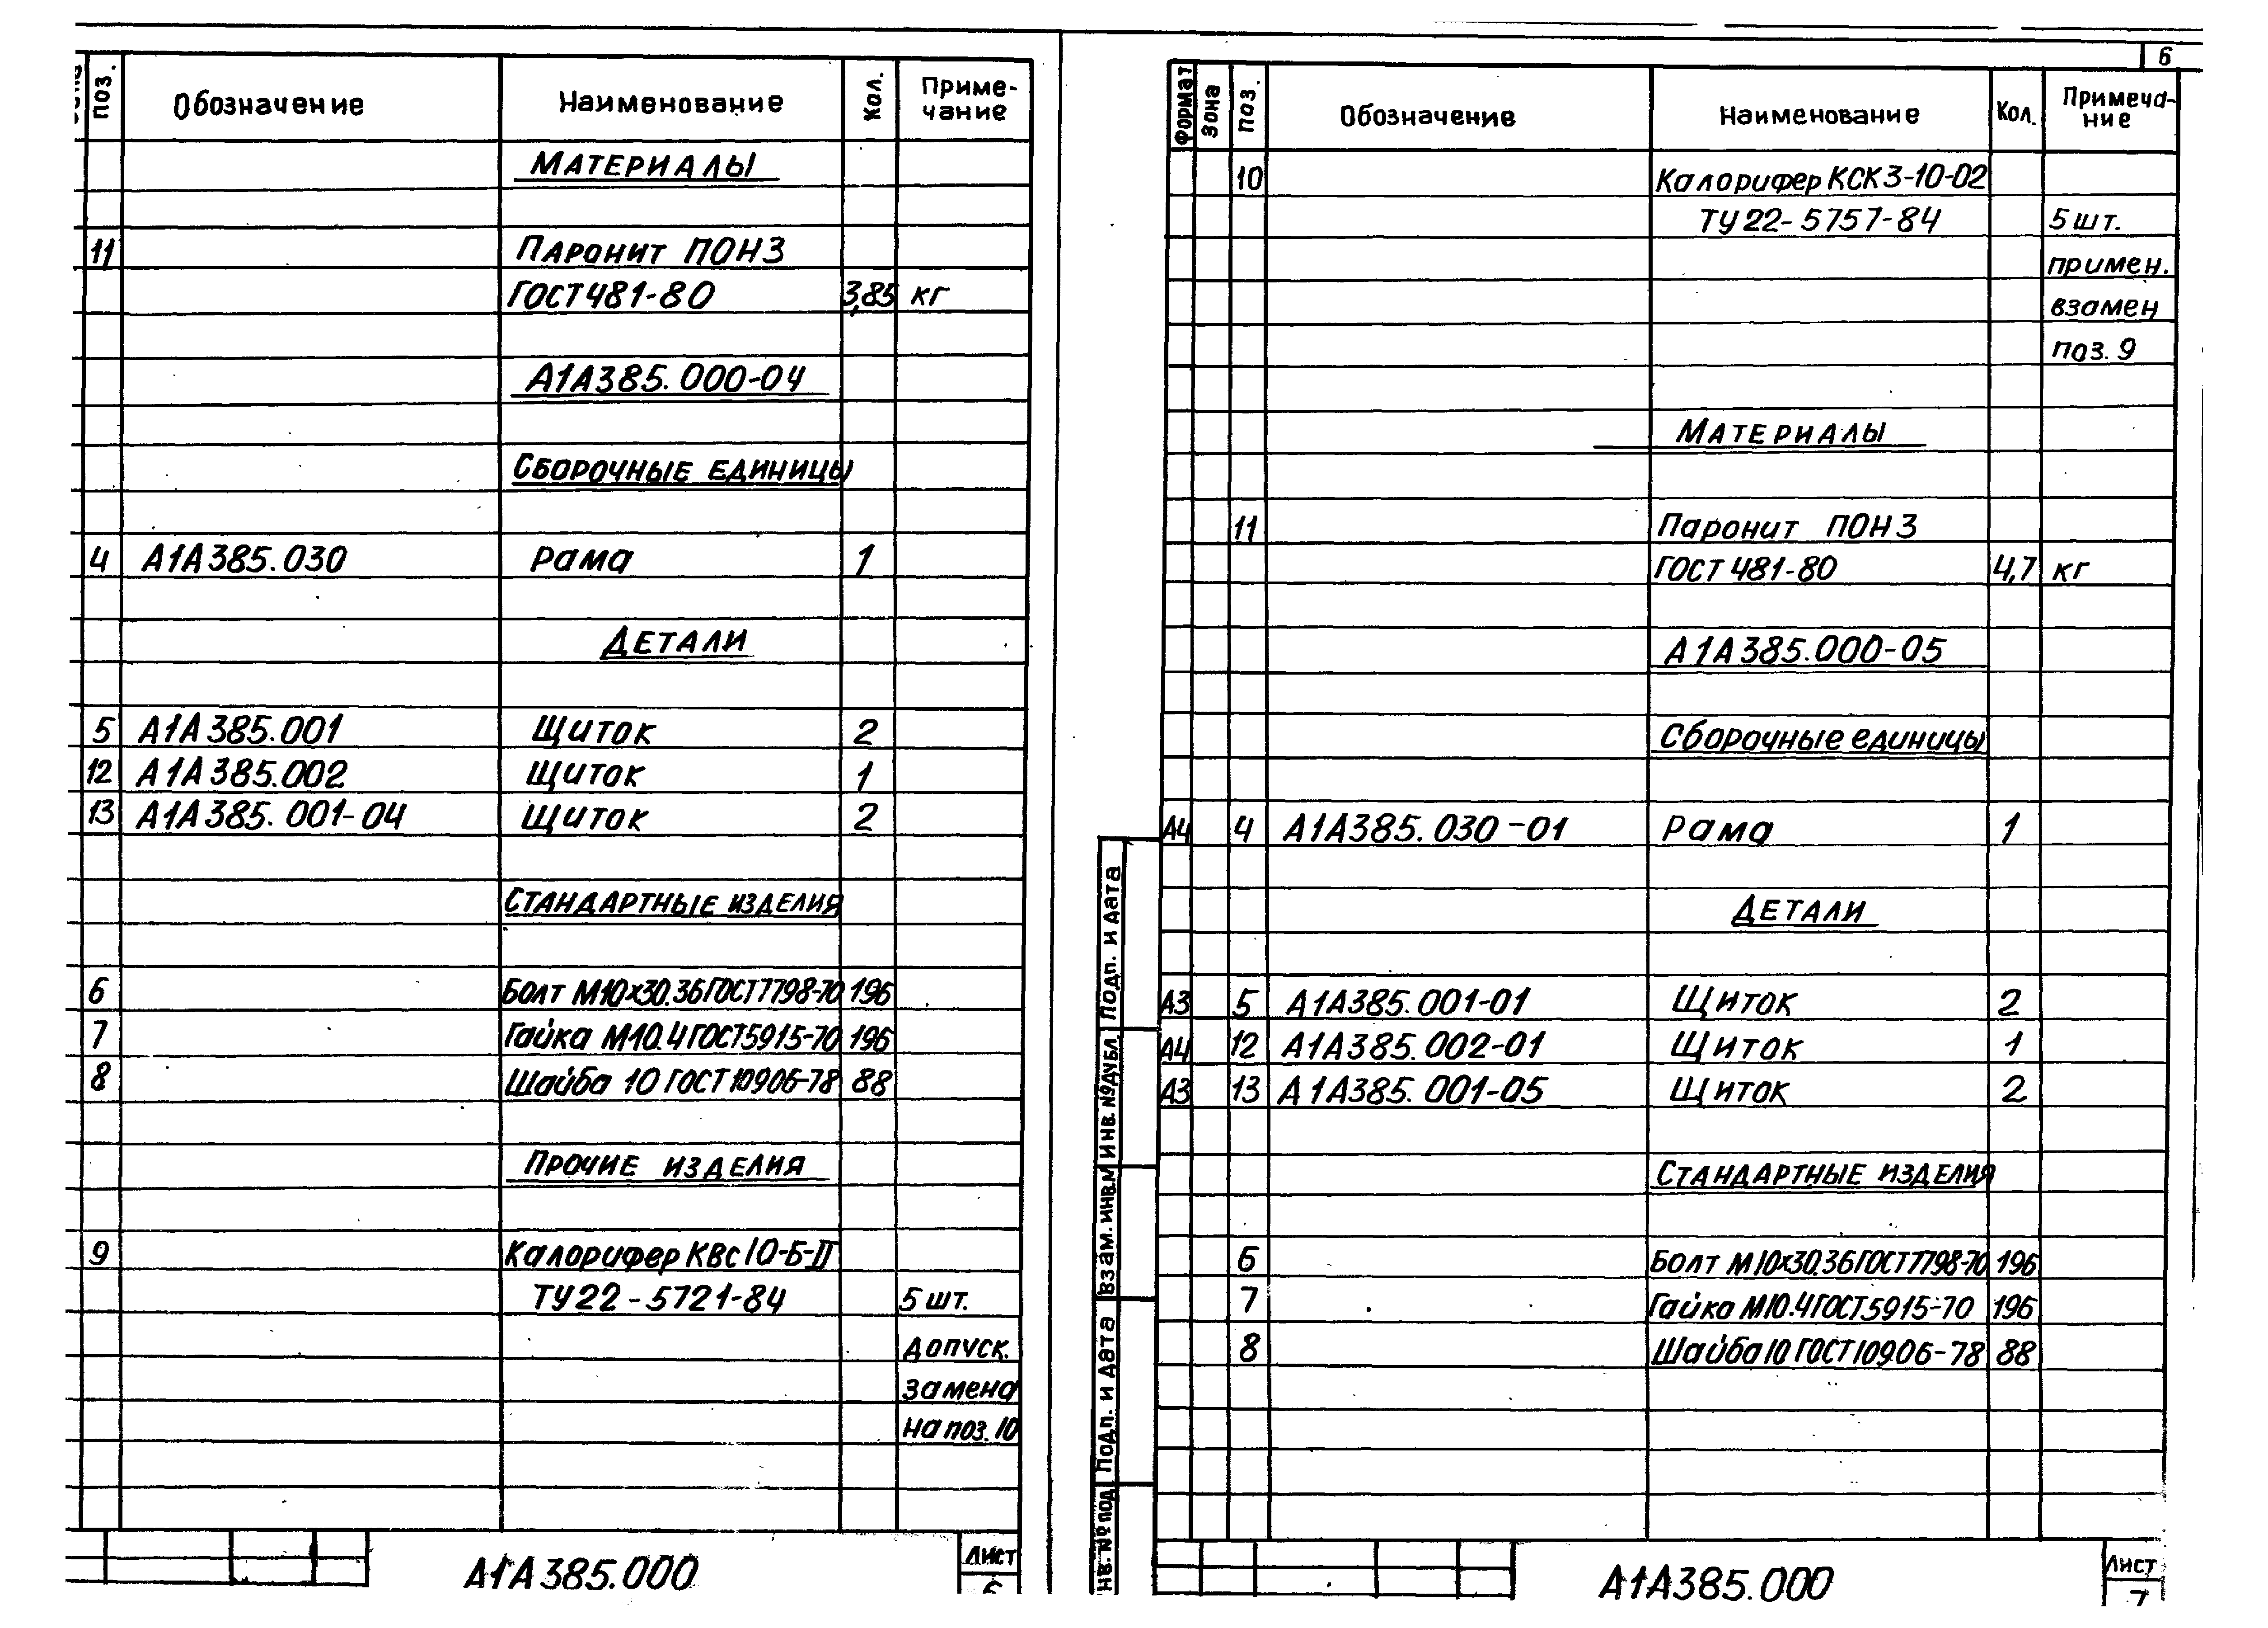 Поз. Обозначение Наименование Кол. Приме-
чание
МАТЕРИАЛЫ
11 Паронит ПОН3
ГОСТ 481-80 3,85 кг
А1А385.000-04
СБОРОЧНЫЕ ЕДИНИЦЫ
4 А1А385.030 Рама 1
ДЕТАЛИ
5 А1А385.001 Щиток 2
12 А1А385.002 Щиток 1
13 А1А385.001-04 Щиток 2
СТАНДАРТНЫЕ ИЗДЕЛИЯ
6 Болт М10х30.36 ГОСТ7798-70 196
7 Гайка М10.4 ГОСТ5915-70 196
8 Шайба 10 ГОСТ 10906-78 88
ПРОЧИЕ ИЗДЕЛИЯ
9 Калорифер КВС10-Б-II
ТУ22-5721-84 5 шт.
допуск.
замена
на поз. 10
А1А385.000 Лист
6
6
Формат Зона Поз. Обозначение Наименование Кол. Примеча-
ние
10 Калорифер КСК3-10-02
ТУ22-5757-84 5 шт.
примен.
взамен
поз. 9
МАТЕРИАЛЫ
11 Паронит ПОН3
ГОСТ 481-80 4,7 кг
А1А385.000-05
Сборочные единицы
А4 4 А1А385.030-01 Рама 1
ДЕТАЛИ
А3 5 А1А385.001-01 Щиток 2
А4 12 А1А385.002-01 Щиток 1
А3 13 А1А385.001-05 Щиток 2
СТАНДАРТНЫЕ ИЗДЕЛИЯ
6 Болт М10х30.36 ГОСТ7798-70 196
7 Гайка М10.4 ГОСТ5915-70 196
8 Шайба 10 ГОСТ10906-78 88
Подп. и дата
Инв. № дубл.
Взам. инв. №
Подп. и дата
нв. № под
А1А385.000 Лист
7